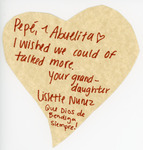 Pepé, y Abuelita ♡
I wished we could of
talked more.
your grand-
daughter
Lisette Nunez
Que Dios de
Bendiga
Siempre!